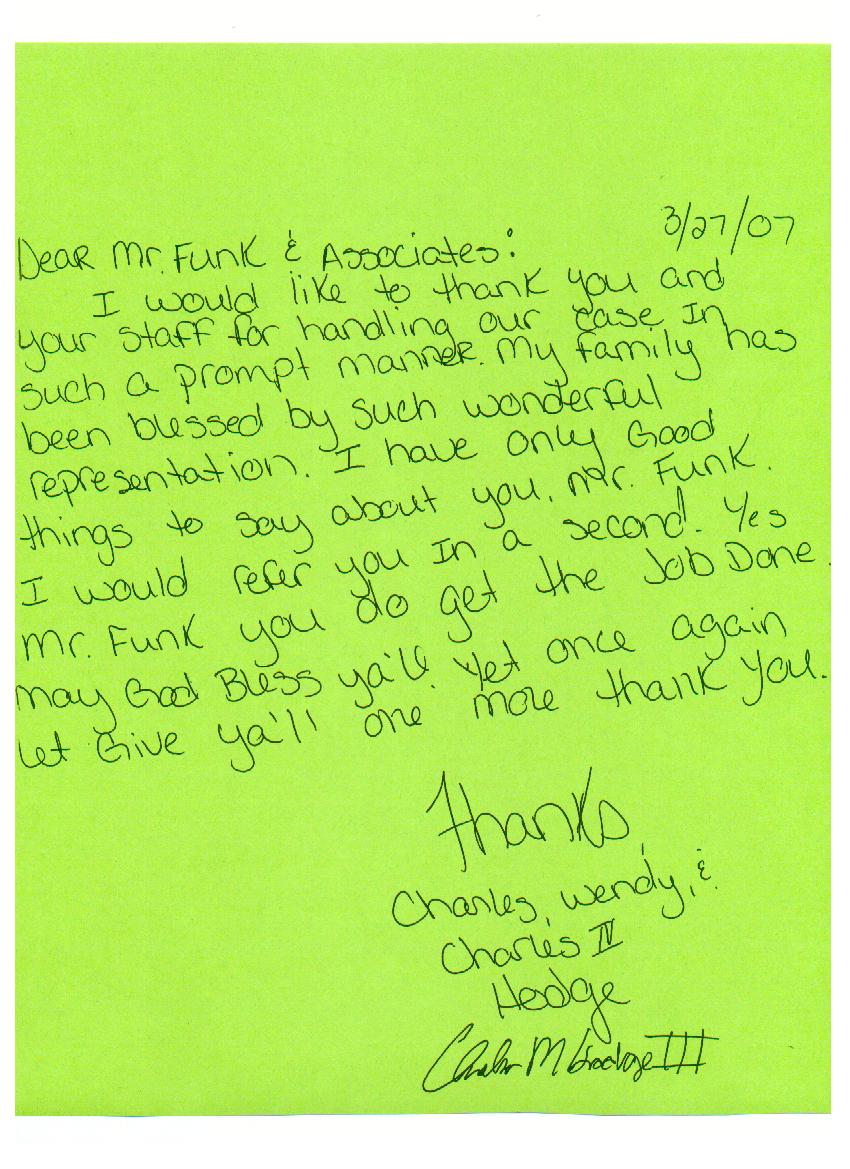 3/27/07
Dear Mr. Funk & Associates:
I would like to thank you and
your staff for handling our case In
such a prompt manner. My family has
been blessed by such wonderful
representation. I have only Good
things to say about you, Mr. Funk.
I would refer you In a second. Yes
Mr. Funk you do get the Job Done.
May God Bless ya'll. Yet once again
let Give ya'll one more thank you.
Thanks,
Charles, Wendy, &
Charles IV
Hodge
Charles M Hodge III